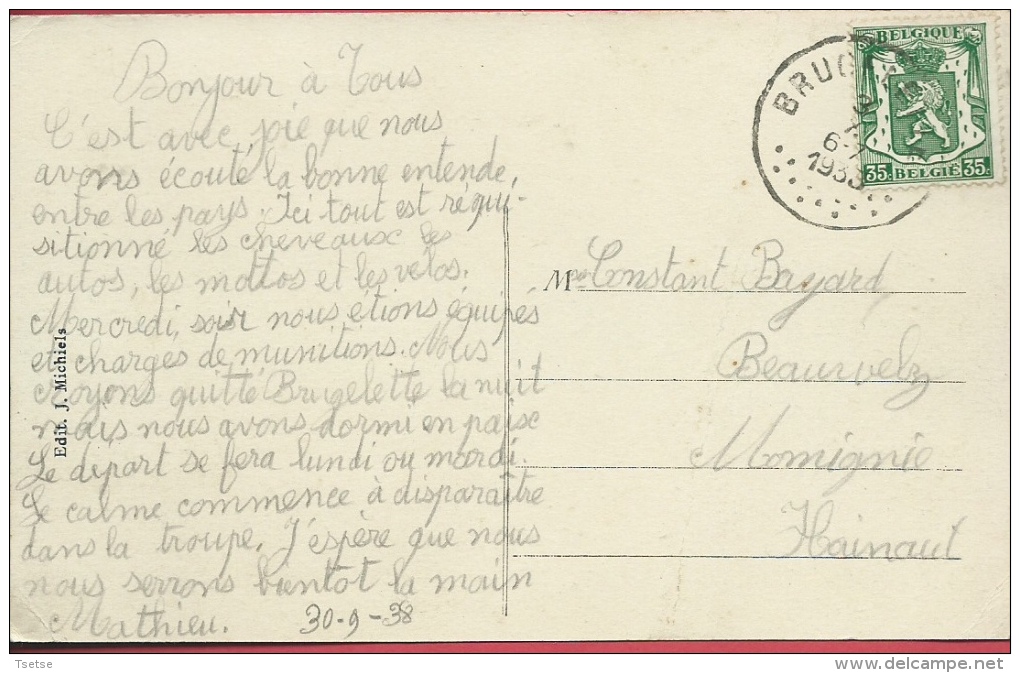 Bonjour à Tous
C'est avec joie que nous
avons écouté la bonne entende,
entre les pays. Ici tout est réqui-
sitionné les cheveaux les
autos, les mottos et les vélos.
Mercredi, soir nous étions équipés
et chargés de munitions. Nous
croyons quitté Brugelette la nuit
mais nous avons dormi en paix
Le départ se fera lundi ou mardi.
Le calme commence à disparaître
dans la troupe. J'espère que nous
nous serrons bientot la main
Mathieu. 30-9-38
Edit. J. Michiels
BELGIQUE
35c BELGIË 35c
BRUG
1938
M Constant Bayard
Beaurwelz
Momignie
Hainaut
Tsetse
delcampe.net